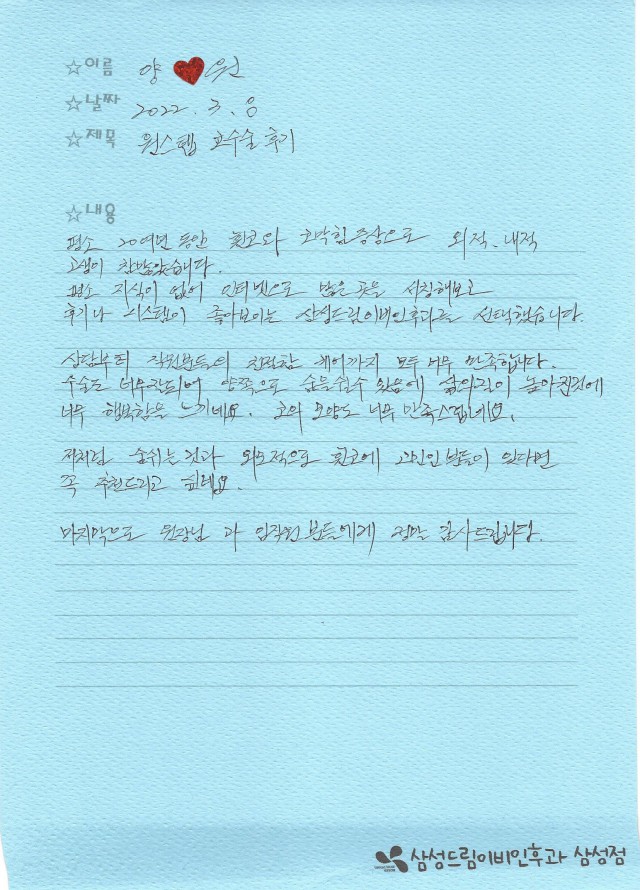 ☆이름 양 ♥ 원
☆날짜 2022. 3. 8
☆제목 원스텝 코수술 후기
☆내용
평소 20여년 동안 휜코와 코막힘 증상으로 외적, 내적
고생이 참많았습니다.
평소 지식이 없어 인터넷으로 많은 곳을 서칭해보고
후기나 시스템이 좋아보이는 삼성드림이비인후과를 선택했습니다.
상담부터 직원분들의 친절함 케어까지 모두 너무 만족합니다.
수술도 너무잘되어 양쪽으로 숨을쉴수 있음에 삶의질이 높아진것에
너무 행복함을 느끼네요. 코의 모양도 너무 만족스럽네요.
저처럼 숨쉬는것과 외모적으로 휜코에 고민인 분들이 있다면
꼭 추천드리고 싶네요.
마지막으로 원장님 과 임직원 분들에게 정말 감사드립니당.
삼성드림이비인후과 삼성점